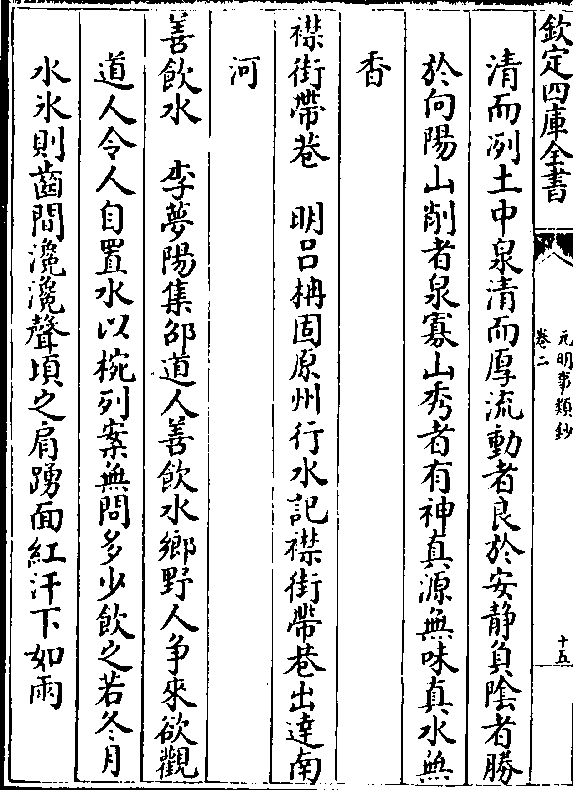 欽定四庫全書
元明事類鈔
卷二
十五
清而冽土中泉清而厚流動者良於安静負陰者勝
於向陽山削者泉寡山秀者有神真源無味真水無
香
襟街帶巷　明吕柟固原州行水記襟街帶巷出達南
河
善飲水　李夢陽集邵道人善飲水鄉野人争來欲觀
道人令人自置水以椀列案無問多少飲之若冬月
水氷則齒間㶟㶟聲頃之肩踴面紅汗下如雨